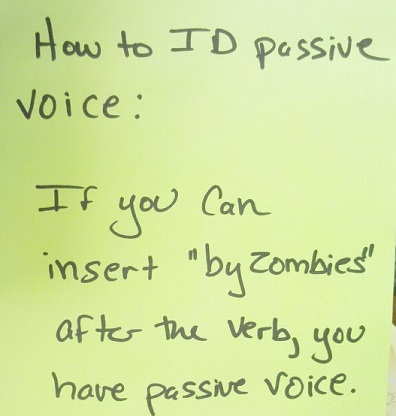 How to ID passive
voice:
If you can
insert "by zombies"
after the verb, you
have passive voice.